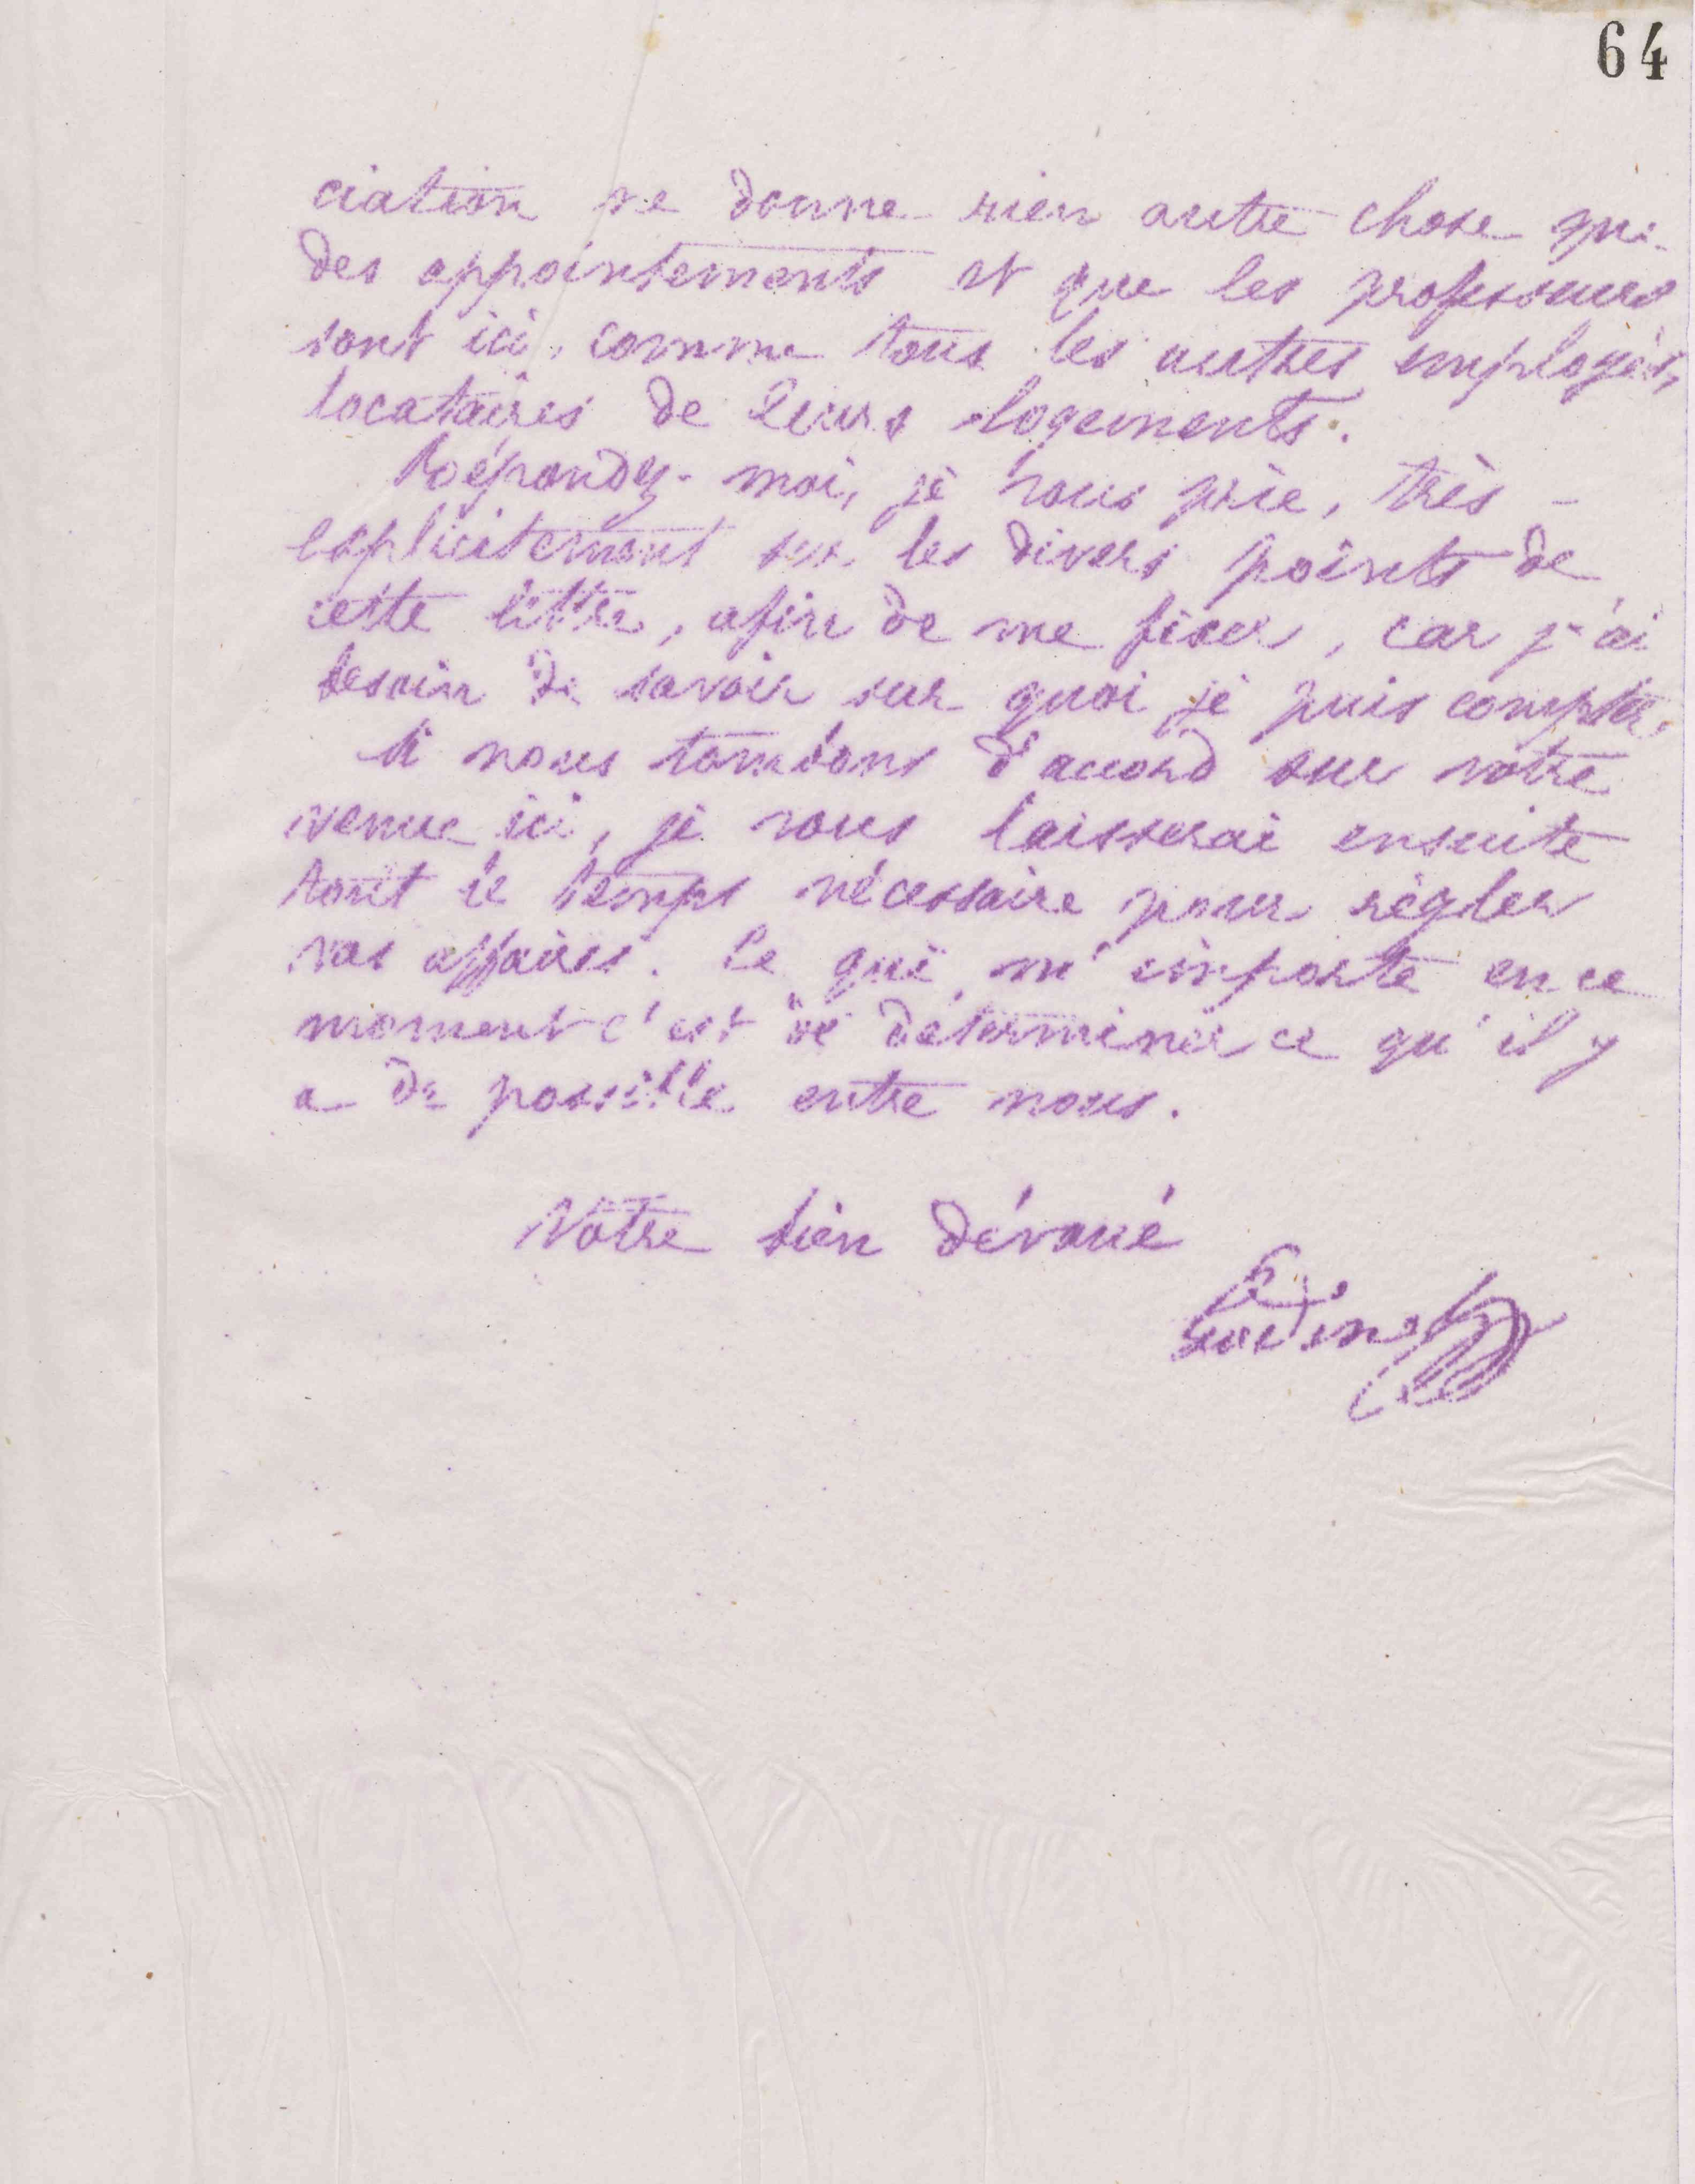 64
ciation ne donne rien autre chose que
des appointements et que les professeurs
sont ici, comme tous les autres employés,
locataires de leurs logements.
Répondez-moi, je vous prie, très-
explicitement sur les divers points de
cette lettre, afin de me fixer, car j'ai
besoin de savoir sur quoi je puis compter.
Si nous tombons d'accord sur votre
venue ici, je vous laisserai ensuite
tout le temps nécessaire pour régler
vos affaires. Ce qui m'importe en ce
moment c'est de déterminer ce qu'il y
a de possible entre nous.
Votre bien dévoué
Godin